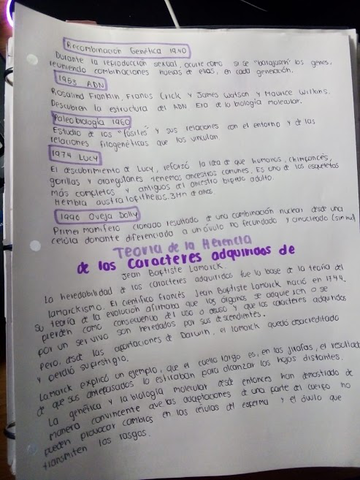 Recombinación Genética 1940
Durante la reproducción sexual ocurre como si se "barajasen" los genes,
reuniendo combinaciones nuevas de ellos, en cada generación.
1953 ADN
Rosalind Franklin Francis Crick y James Watson y Maurice Wilkins.
Descubren la estructura del ADN Era de la biología molecular.
Paleobiología 1960
Estudio de los "fósiles" y sus relaciones con el entorno y de las
relaciones filogenéticas que los vinculan.
1974 Lucy
El descubrimiento de Lucy, reforzó la idea de que humanos, chimpancés,
gorilas y orangutanes tenemos ancestros comunes. Es uno de los esqueletos
más completos y antiguos del ancestro bípedo adulto.
Hembra australopithecus. 3m años
1996 Oveja Dolly
Primer mamífero clonado resultado de una combinación nuclear desde una
célula donante diferenciada a un óvulo no fecundado y anucleado (sin
Teoría de la Herencia
de los Caracteres adquiridos de
Jean Baptiste Lamarck
La heredabilidad de los caracteres adquiridos fue la base de la teoría del
lamarckismo. El científico francés Jean Baptiste Lamarck nació en 1744.
Su teoría de la evolución afirmaba que los órganos se adquieren o se
pierden como consecuencia del uso o desuso y que los caracteres adquiridos
por un ser vivo son heredados por sus descendientes.
Pero, desde las aportaciones de Darwin, el Lamarck quedó desacreditado
y perdió su prestigio.
Lamarck explicó un ejemplo, que el cuello largo es, en las jirafas, el resultado
de que sus antepasados lo estiraban para alcanzar las hojas distantes.
La genética y la biología molecular desde entonces han demostrado de
manera convincente que las adaptaciones de una parte del cuerpo no
pueden provocar cambios en las células del esperma y el óvulo que
transmiten los rasgos.